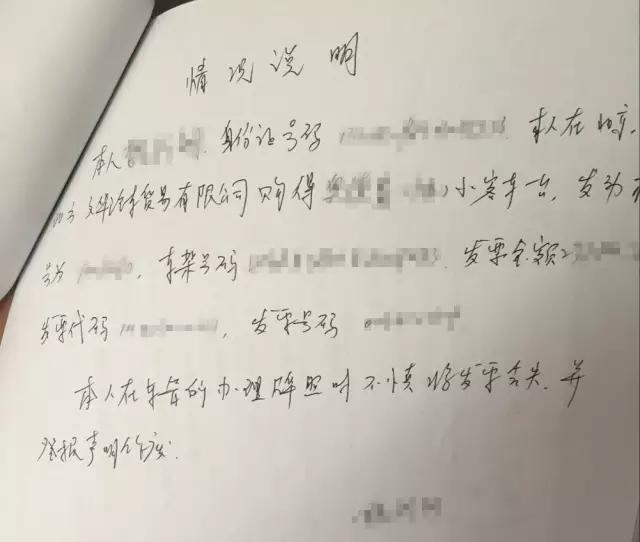 情况说明
本人 身份证号码 本人在北京
汽车贸易有限公司购得 小客车一台，发动
号为 ，车架号码 ，发票金额
发票代码 ，发票号码
本人在车管所办理牌照时不慎将发票丢失，并
登报声明作废.